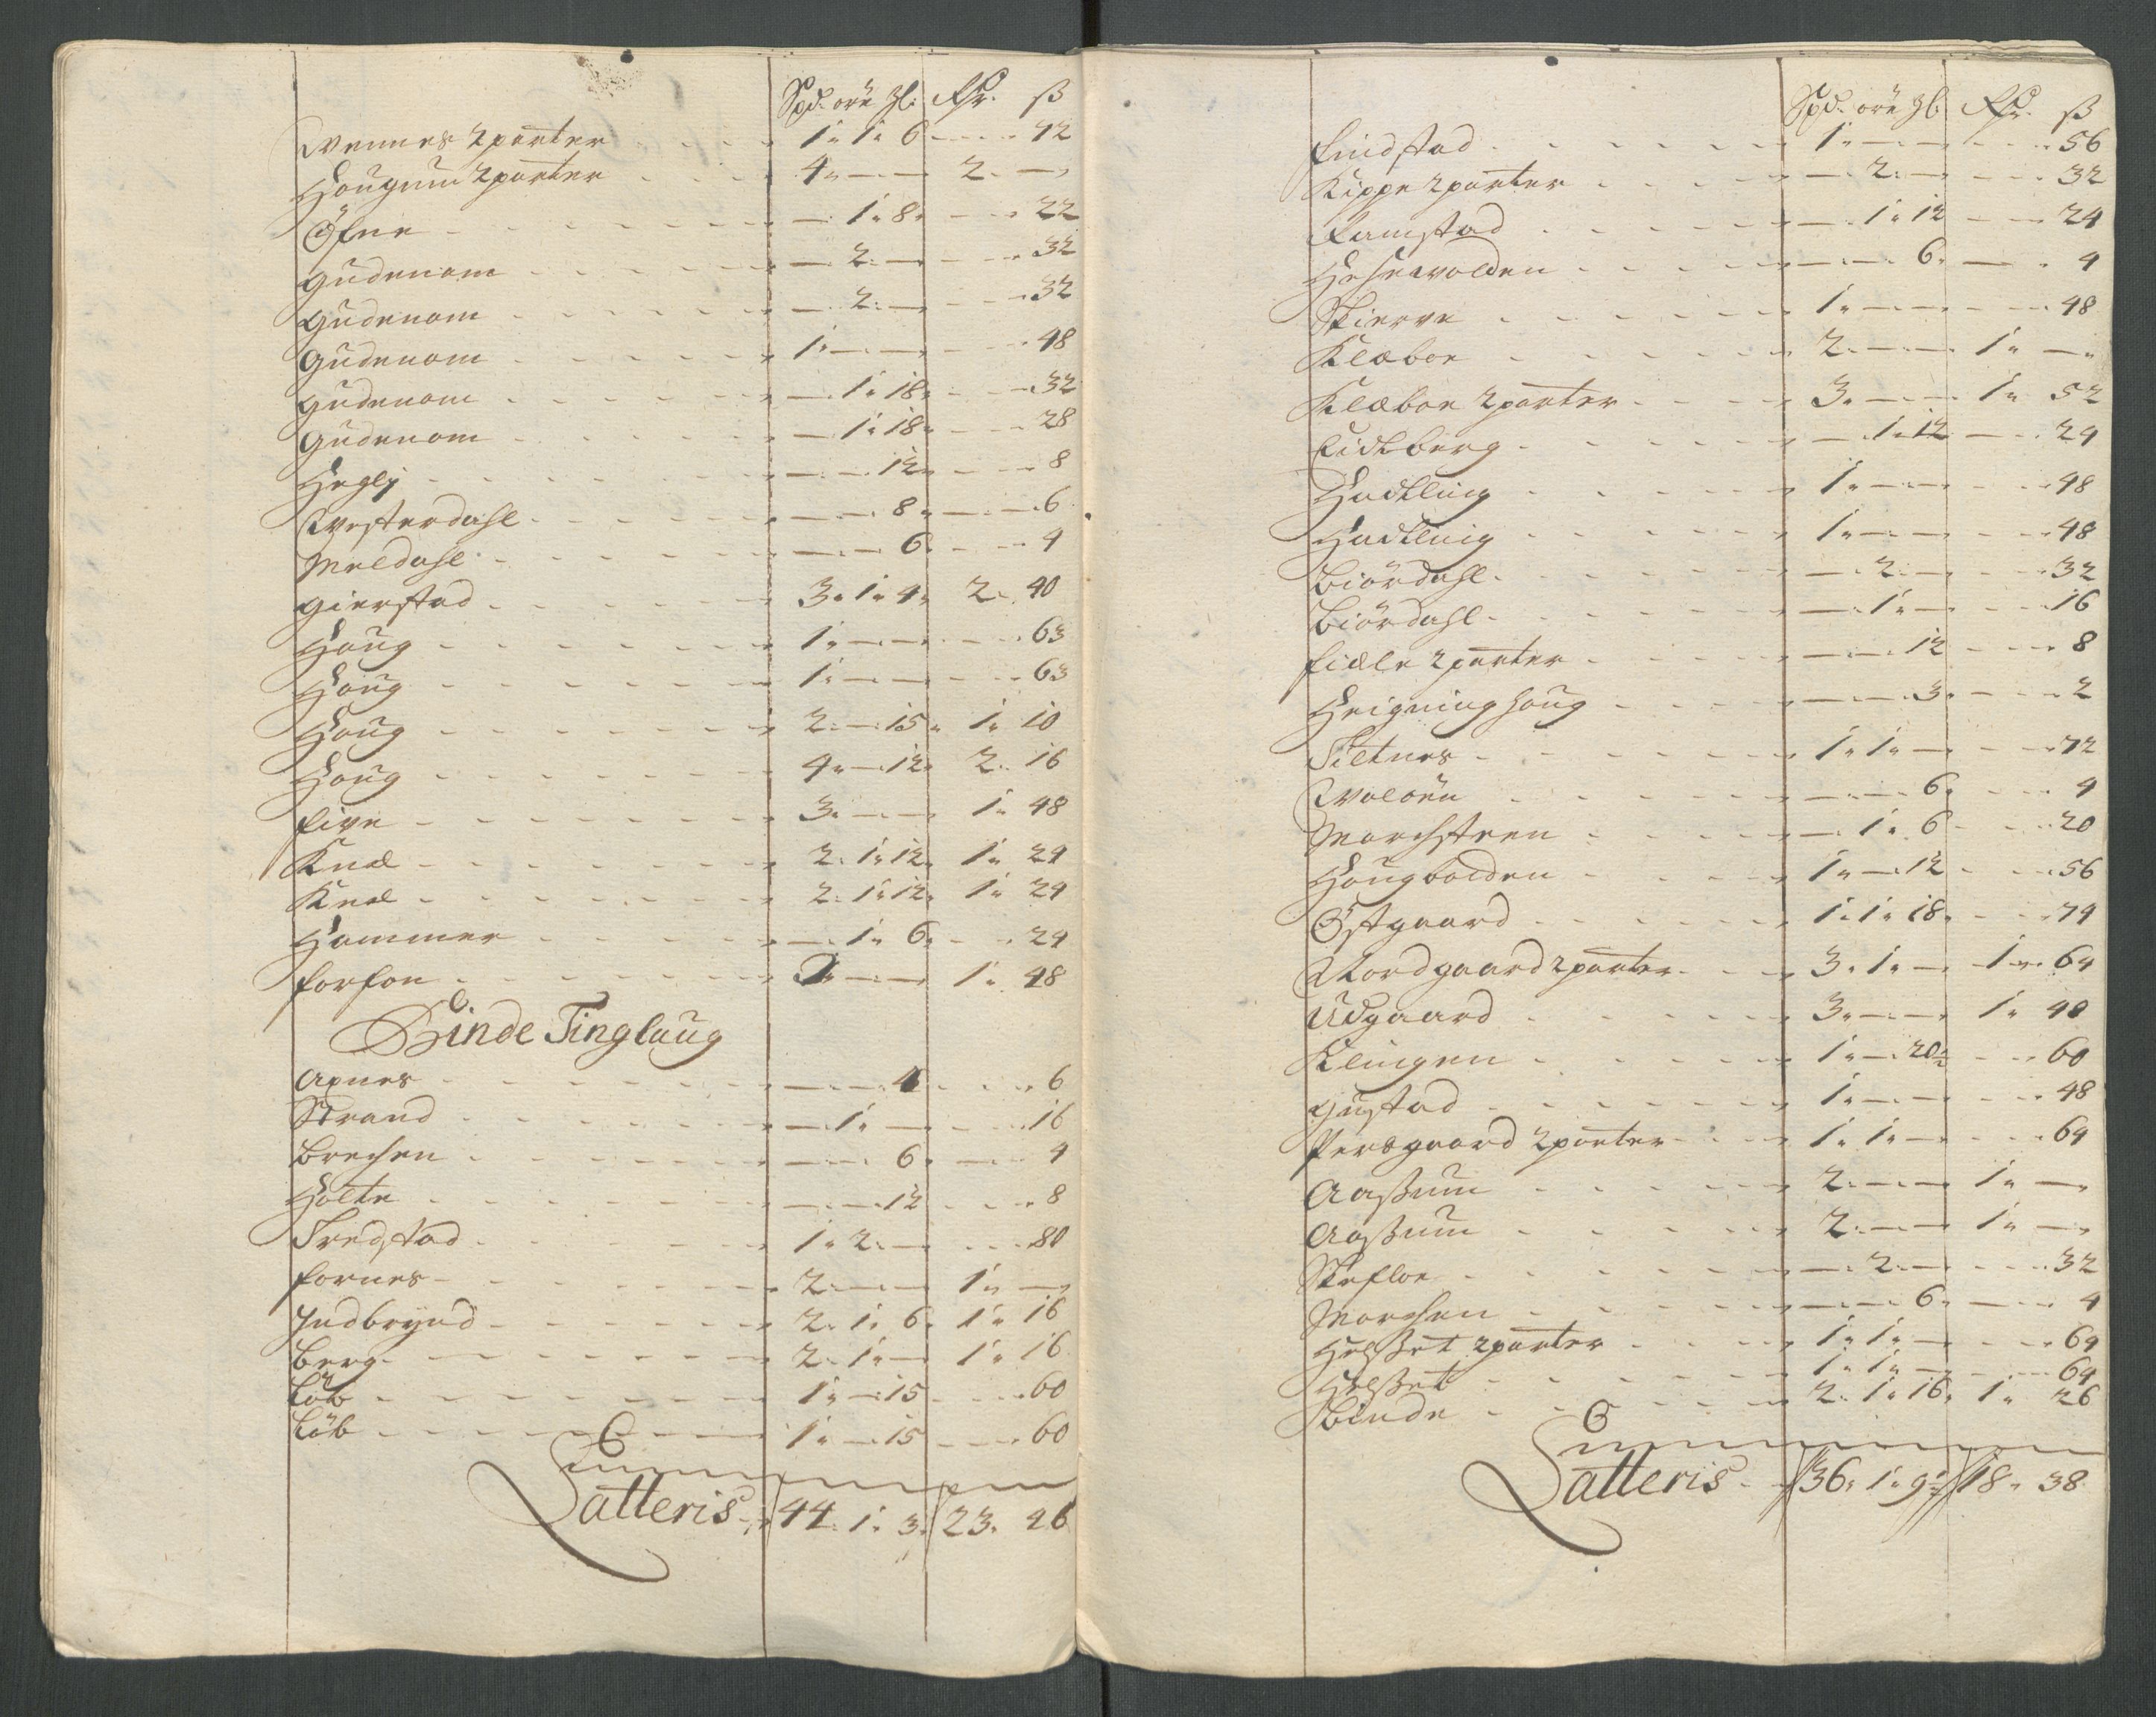 Spd. öre gl. Rdr. ß
Wennes 2 parter 1. 1. 6 — 42
Hougum 2 parter 4. — — 2. —
Öfne — 1. 8. — 22
Gudenom — 2. — — 32
Gudenom — 2. — — 32
Gudenom 1. — — — 48
Gudenom — 1. 18. — 32
Gudenom — 1. 18. — 28
Hegly — — 12. — 8
Westerdahl — — 8. — 6
Meldahl — — 6. — 4
Gierstad 3. 1. 4. 2. 40
Houg 1. — — — 63
Houg 1. — — — 63
Houg 2. — 15. 1. 10
Houg 4. — 12. 2. 16
Five 3. — — 1. 48
Knæ 2. 1. 12. 1. 24
Knæ 2. 1. 12. 1. 24
Hammer — 1. 6. — 24
Forfon — — 1. 48
Binde Tinglaug
Apnes — — — 6
Strand — 1. — — 16
Brechen — — 6. — 4
Holte — — 12 — 8
Tredstad 1. 2. — — 80
Fornes 2. — — 1. —
Indbrynd 2. 1. 6. 1. 16
Berg 2. 1. — 1. 16
Löb 1. — 15 — 60
Löb 1. — 15 — 60
Summa
Latteris 44. 1. 3. 23. 46
Spd. öre gl. Rdr. ß
Findstad 1. — — — 56
Kippe 2 parter — 2. — — 32
Ramstad — 1. 12 — 24
Hosewolden — — 6. — 4
Skierve 1. — — — 48
Klæboe 2. — — 1. —
Klæboe 2 parter 3. — — 1. 52
Lidtberg — 1. 12 — 24
Hadtling 1. — — — 48
Hadtling 1. — — — 48
Biördahl — 2. — — 32
Biördahl — 1. — — 16
Fidle 2 parter — — 12 — 8
Heigninghoug — — 3. — 2
Siltnes 1. 1. — — 72
Waløen — — 6. — 4
Marchsteen — 1. 6 — 20
Hougbolden 1. — 12 — 56
Östgaard 1. 1. 18. — 74
Nordgaard 2 parter 3. 1. — 1. 64
Udgaard 3. — — 1. 48
Klingen 1. — 20½ — 60
Gustad 1. — — — 48
Persgaard 2 parter 1. 1. — — 64
Aaßum 2. — — 1. —
Aaßum 2. — — 1. —
Skefloe — 2. — — 32
Marchen — — 6. — 4
Helßet 2 parter 1. 1. — — 64
Helßet 1. 1. — — 64
Binde 2. 1. 16. 1. 26
Summa
Latteris 36. 1. 9½ 18. 38